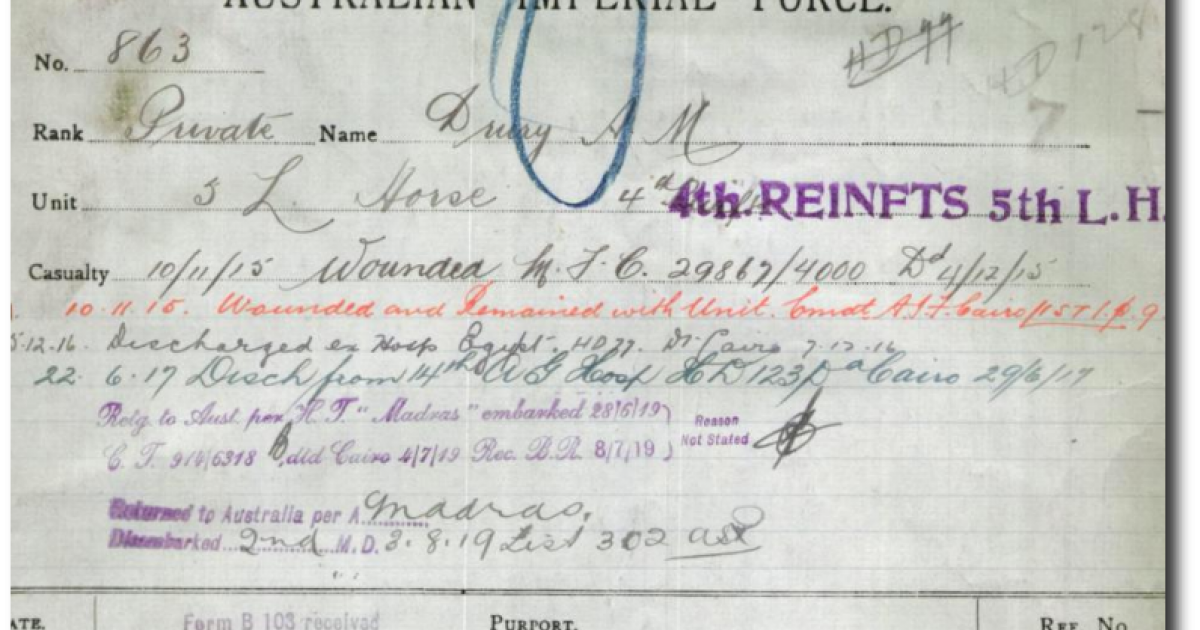 AUSTRALIAN IMPERIAL FORCE.
No. 863
HD 99
HD 128
7
Rank Private Name Drury A M
Unit 5 L Horse 4th 4th. REINFTS 5th L. H.
Casualty 10/11/15 Wounded M. F. C. 29867/4000 Dd 4/12/15
10.11.15. Wounded and Remained with Unit. Comdt A.I.F. Cairo
5.12.16. Discharged ex Hosp Egypt. HD 77. Dt. Cairo 7.12.16
22. 6.17 Disch from 14th A G Hosp HD 123 Cairo 29/6/17
Retg. to Aust. per H. T. "Madras" embarked 28/6/19) Reason
C. T. 914/6318 dtd Cairo 4/7/19 Rec. B.R. 8/7/19) Not Stated
Returned to Australia per A Madras.
Disembarked 2nd M.D. 3.8.19 List 302
ATE. Form B 103 received PURPORT. REF. NO.